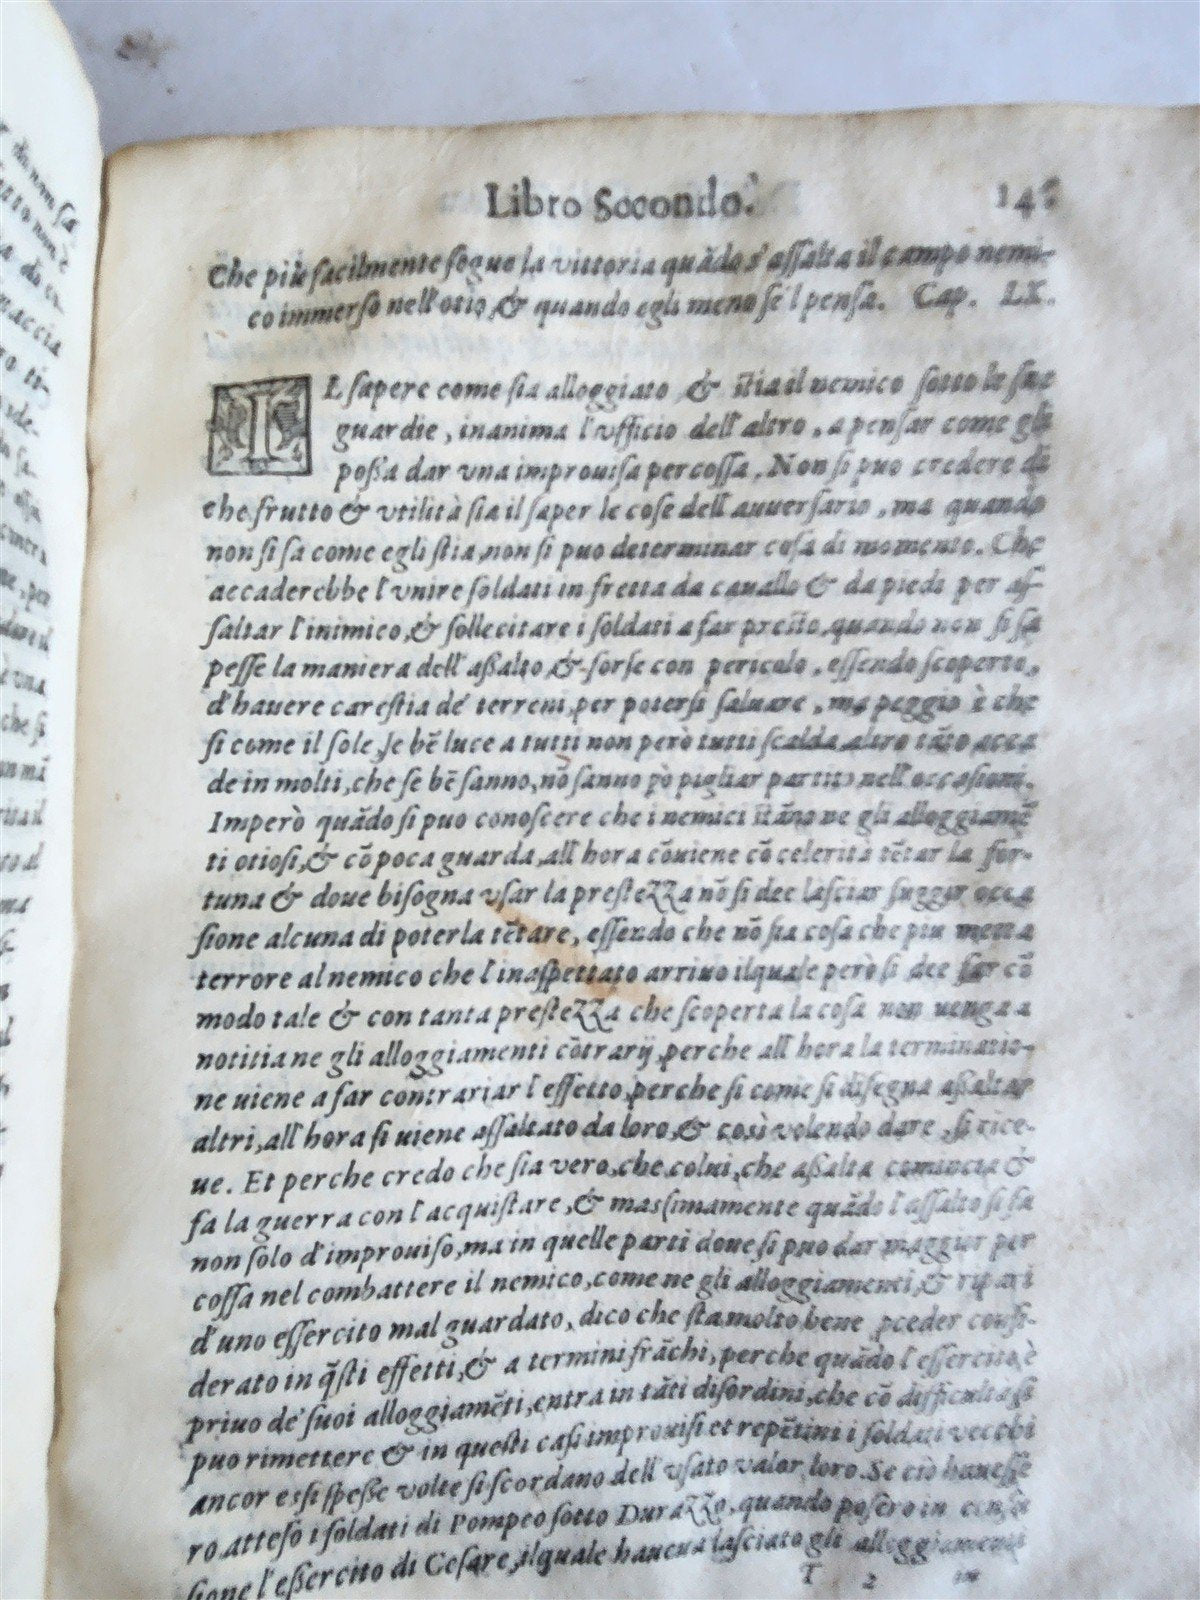 Libro Secondo.
Che più facilmente segue la vittoria quādo s'assalta il campo nemi-
co immerso nell'otio, & quando egli meno se'l pensa. Cap. LX.
IL sapere come sia alloggiato & stia il nemico sotto le sue
guardie, inanima l'vfficio dell'altro, a pensar come gli
possa dar vna improuisa percossa. Non si puo credere di
che frutto & vtilità sia il saper le cose dell'auuersario, ma quando
non si sa come egli stia, non si puo determinar cosa di momento. Che
accaderebbe l'vnire soldati in fretta da cauallo & da piedi per as-
saltar l'inimico, & sollecitare i soldati a far presto, quando non si sa
pesse la maniera dell'assalto, & forse con pericolo, essendo scoperto,
d'hauere carestia de' terreni, per potersi saluare, ma peggio è che
si come il sole, se bē luce a tutti non però tutti scalda, altro tāto acca
de in molti, che se bē sanno, nō sanno pò pigliar partito nell'occasioni.
Imperò quādo si puo conoscere che i nemici stāno ne gli alloggiamē
ti otiosi, & cō poca guarda, all'hora cōuiene cō celerità tētar la for-
tuna & doue bisogna vsar la prestezza nō si dee lasciar fuggir occa
sione alcuna di poterla tētare, essendo che nō sia cosa che piu metta
terrore al nemico che l'inaspettato arriuo ilquale però si dee far cō
modo tale & con tanta prestezza che scoperta la cosa non uenga a
notitia ne gli alloggiamenti cōtrarij, perche all'hora la terminatio-
ne uiene a far contrariar l'effetto, perche si come si disegna assaltar
altri, all'hora si uiene assaltato da loro, & così volendo dare, si rice-
ue. Et perche credo che sia vero, che colui, che assalta comincia &
fa la guerra con l'acquistare, & massimamente quādo l'assalto si fa
non solo d'improuiso, ma in quelle parti doue si puo dar maggior per
cossa nel combattere il nemico, come ne gli alloggiamenti, & ripari
d'uno essercito mal guardato, dico che sta molto bene pceder consi-
derato in q̄sti effetti, & a termini frāchi, perche quādo l'essercito è
priuo de' suoi alloggiamēti, entra in tāti disordini, che cō difficultà si
puo rimettere & in questi casi improuisi et repētini i soldati vecchi
ancor essi spesse volte si scordano dell'vsato valor loro. Se ciò hauesse
ro atteso i soldati di Pompeo sotto Durazzo, quando posero in
sione l'essercito di Cesare, ilquale haueua lasciato gli alloggiamenti
T 2